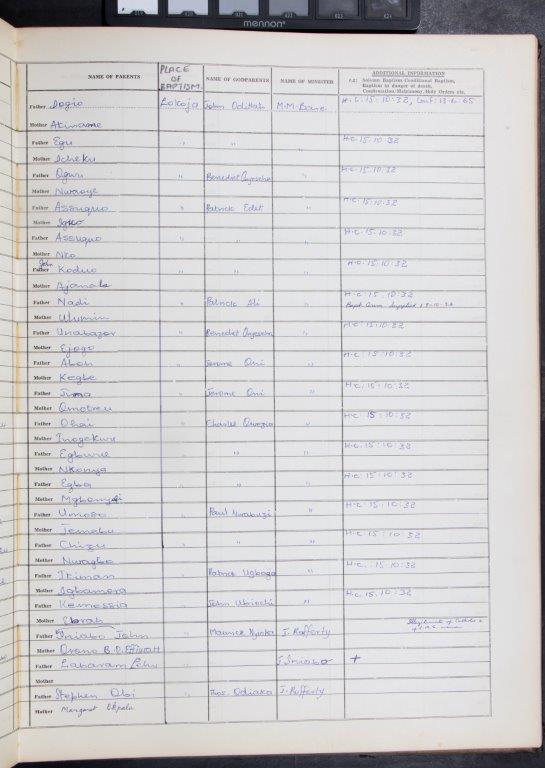 mennon
NAME OF PARENTS PLACE OF BAPTISM. NAME OF GODPARENTS NAME OF MINISTER ADDITIONAL INFORMATION
e.g.: Solemn Baptism, Conditional Baptism,
Baptism in danger of death,
Confirmation, Matrimony, Holy Orders etc.
Father Lokoja John M.M. H.C. 15:10:32, Conf: 13.6.65
Mother
Father Egu " " " H.C. 15.10.32
Mother
Father Oguu " Benedict " H.C. 15.10.32
Mother Nwaoye
Father Assuquo " Patrick Edet " H.C. 15.10.32
Mother
Father Assuquo " " " H.C. 15.10.32
Mother Nko
John
Father Koduo " " " H.C. 15.10.32
Mother Ajanata
Father Nadi " Patrick Ali " H.C. 15.10.32
Bapt. Supplied
Mother Ulumin
Father Unabazor " Benedict " H.C. 15.10.32
Mother Ejogo
Father Abah " Jerome Oni " H.C. 15.10.32
Mother Kegbe
Father Juma " Jerome Oni " H.C. 15:10:32
Mother
Father Obai " Charles " H.C. 15:10:32
Mother
Father Egbunue " " " H.C. 15.10.32
Mother Nkonya
Father Egba " " " H.C. 15:10:32
Mother
Father Umoso " Paul Nwabuzi " H.C. 15:10:32
Mother
Father Chizu " " " H.C. 15:10:32
Mother Nwaygbo
Father Itiman " Patrick Ugboga " H.C. 15:10:32
Mother Igbamera
Father Kemassia " John H.C. 15.10:32
Mother
Father Iniabo John " Maurice J. Rafferty
Mother
Father " J. Iniabo +
Mother
Father Stephen Obi " Thos. Odiaka J. Rafferty
Mother Margaret Okpala